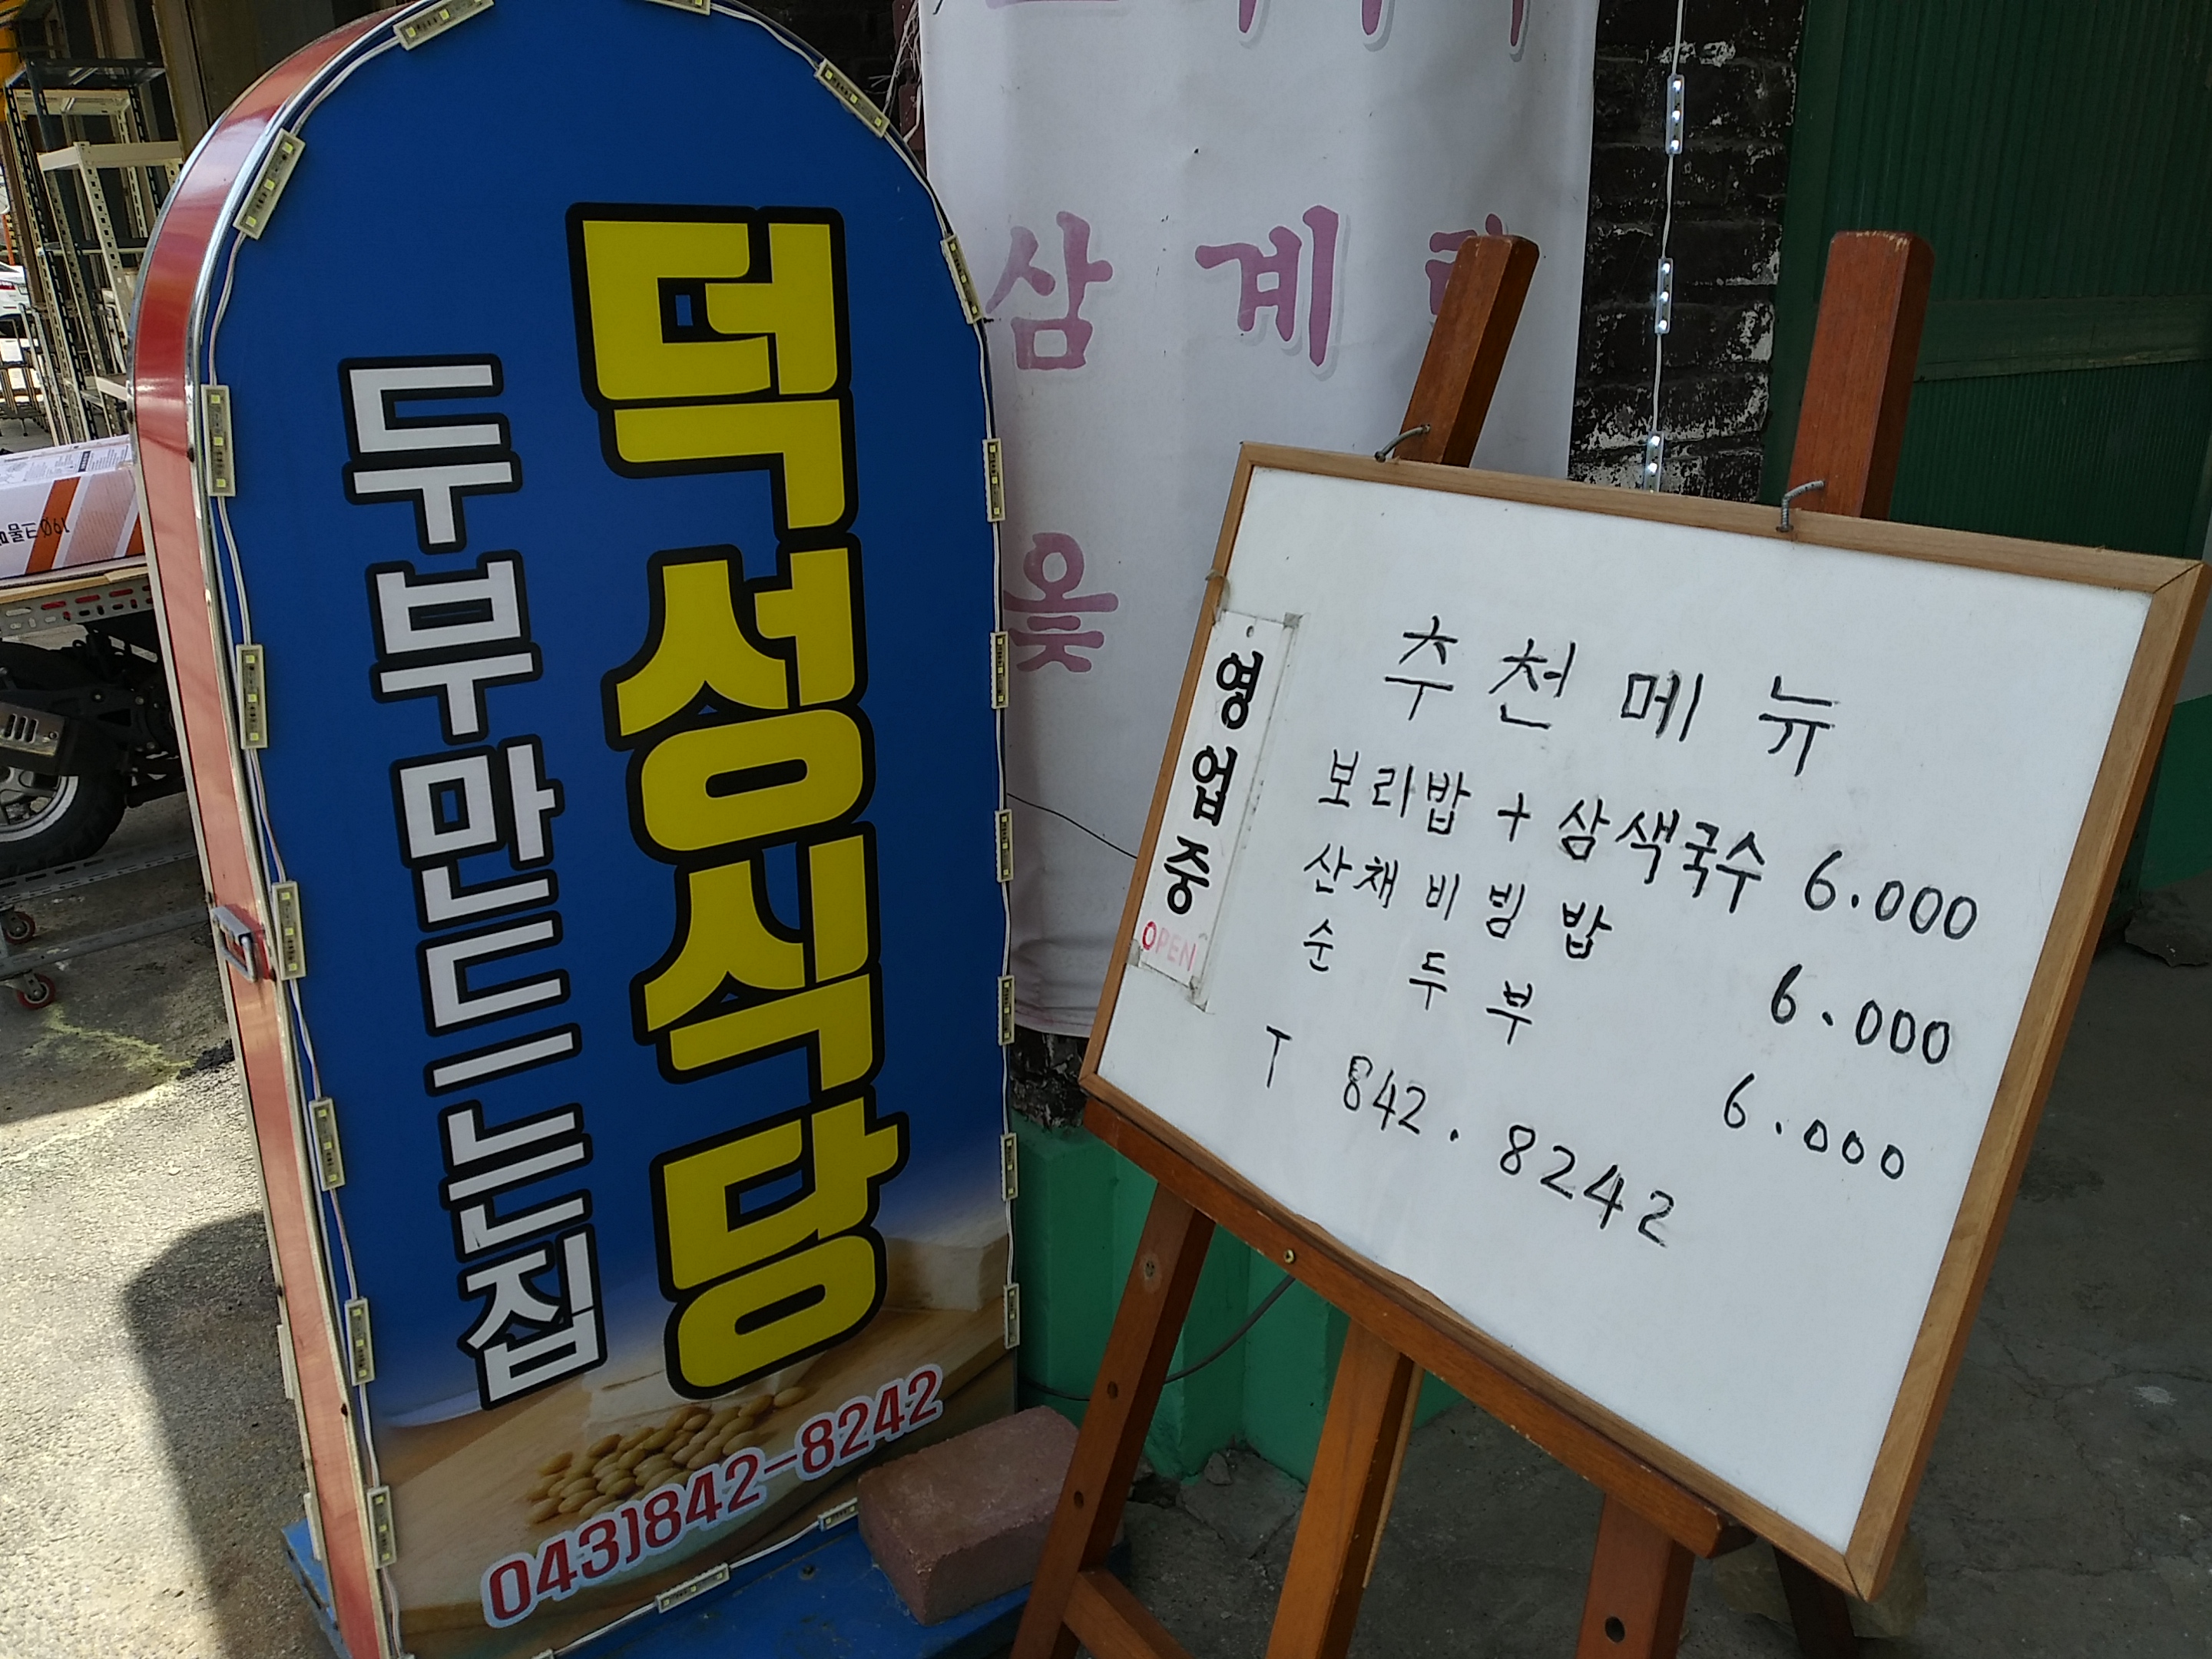 덕성식당
두부만드는집
043)842-8242
삼계탕
옻
영업중
OPEN
추천메뉴
보리밥 + 삼색국수 6.000
산채비빔밥 6.000
순두부 6.000
T 842.8242